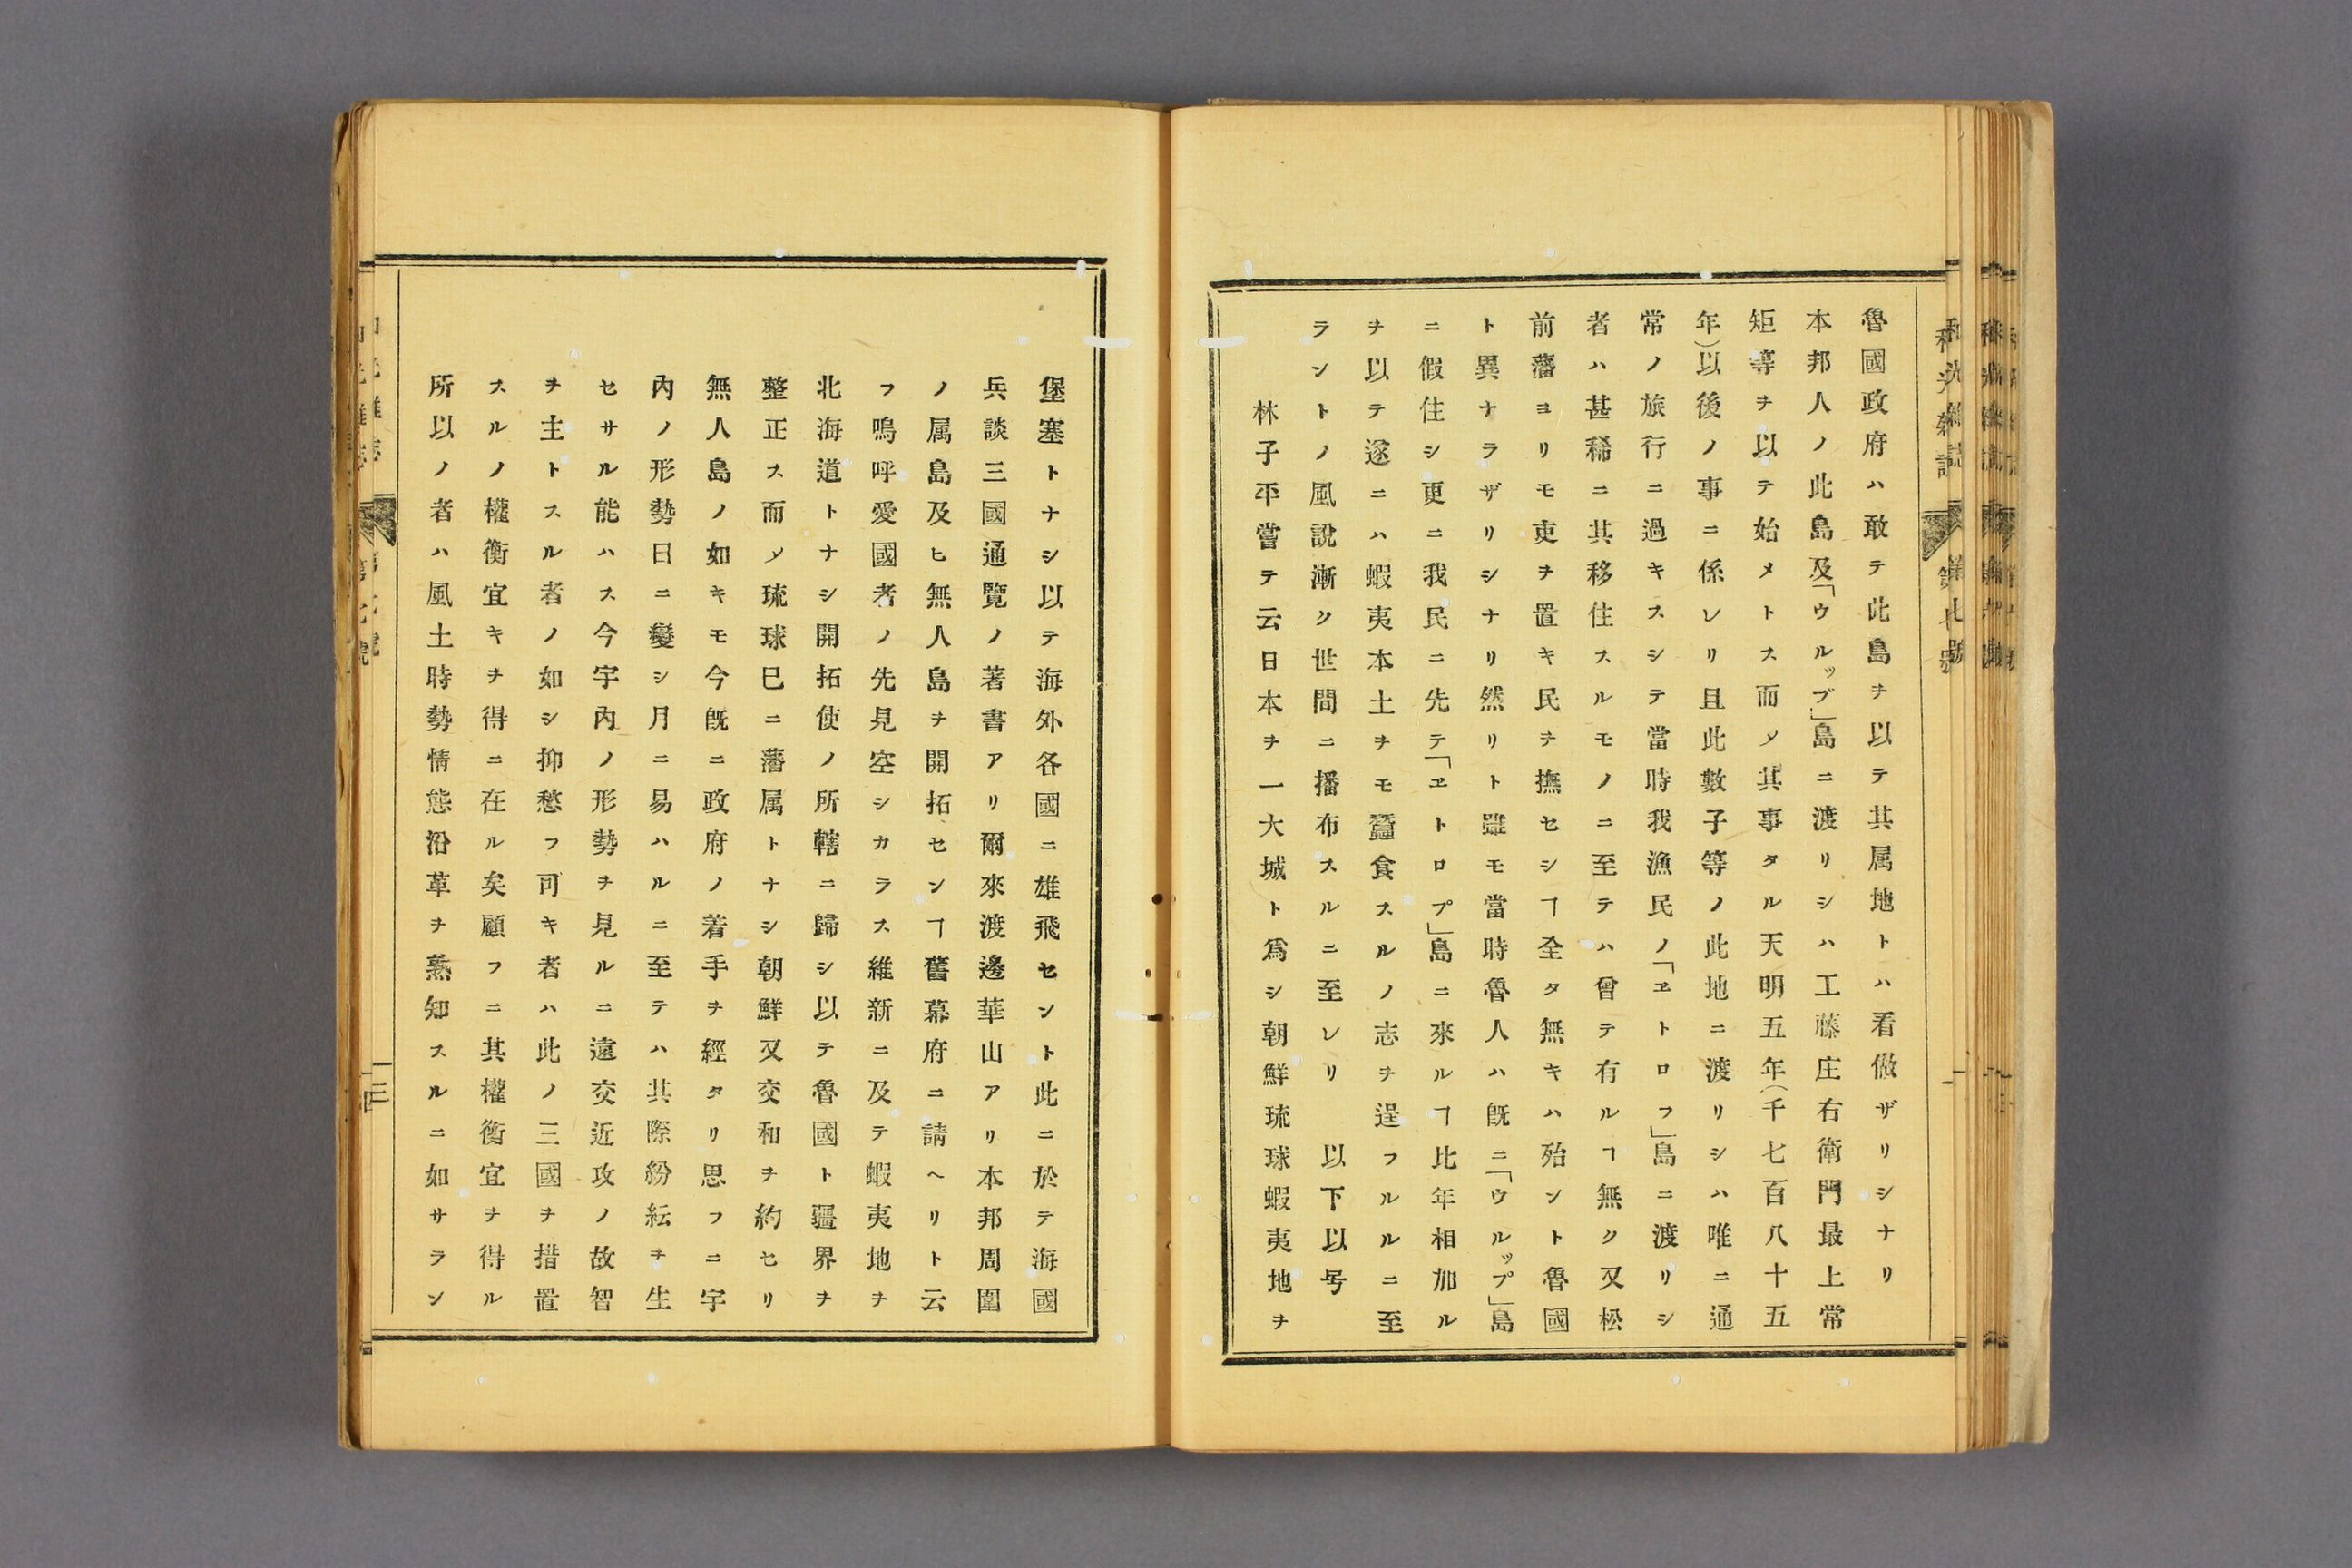 魯國政府ハ敢テ此島ヲ以テ其属地トハ看做ザリシナリ
本邦人ノ此島及「ウルップ」島ニ渡リシハ工藤庄右衛門最上常
矩等ヲ以テ始メトス而〆其事タル天明五年(千七百八十五
年)以後ノ事ニ係レリ且此數子等ノ此地ニ渡リシハ唯ニ通
常ノ旅行ニ過キスシテ當時我漁民ノ「ヱトロフ」島ニ渡リシ
者ハ甚稀ニ其移住スルモノニ至テハ曾テ有ルヿ無ク又松
前藩ヨリモ吏ヲ置キ民ヲ撫セシヿ全タ無キハ殆ント魯國
ト異ナラザリシナリ然リト雖モ當時魯人ハ旣ニ「ウルップ」島
ニ假住シ更ニ我民ニ先テ「ヱトロプ」島ニ來ルヿ比年相加ル
ヲ以テ遂ニハ蝦夷本土ヲモ蠶食スルノ志ヲ逞フルルニ至
ラントノ風說漸ク世間ニ播布スルニ至レリ 以下以号
林子平嘗テ云日本ヲ一大城ト爲シ朝鮮琉球蝦夷地ヲ
堡塞トナシ以テ海外各國ニ雄飛セント此ニ於テ海國
兵談三國通覽ノ著書アリ爾來渡邊華山アリ本邦周圍
ノ属島及ヒ無人島ヲ開拓センヿ舊幕府ニ請ヘリト云
フ嗚呼愛國者ノ先見空シカラス維新ニ及テ蝦夷地ヲ
北海道トナシ開拓使ノ所轄ニ歸シ以テ魯國ト疆界ヲ
整正ス而〆琉球已ニ藩属トナシ朝鮮又交和ヲ約セリ
無人島ノ如キモ今旣ニ政府ノ着手ヲ經タリ思フニ宇
內ノ形勢日ニ變シ月ニ易ハルニ至テハ其際紛紜ヲ生
セサル能ハス今宇內ノ形勢ヲ見ルニ遠交近攻ノ故智
ヲ主トスル者ノ如シ抑愁フ可キ者ハ此ノ三國ヲ措置
スルノ權衡宜キヲ得ニ在ル矣顧フニ其權衡宜ヲ得ル
所以ノ者ハ風土時勢情態沿革ヲ熟知スルニ如サラン